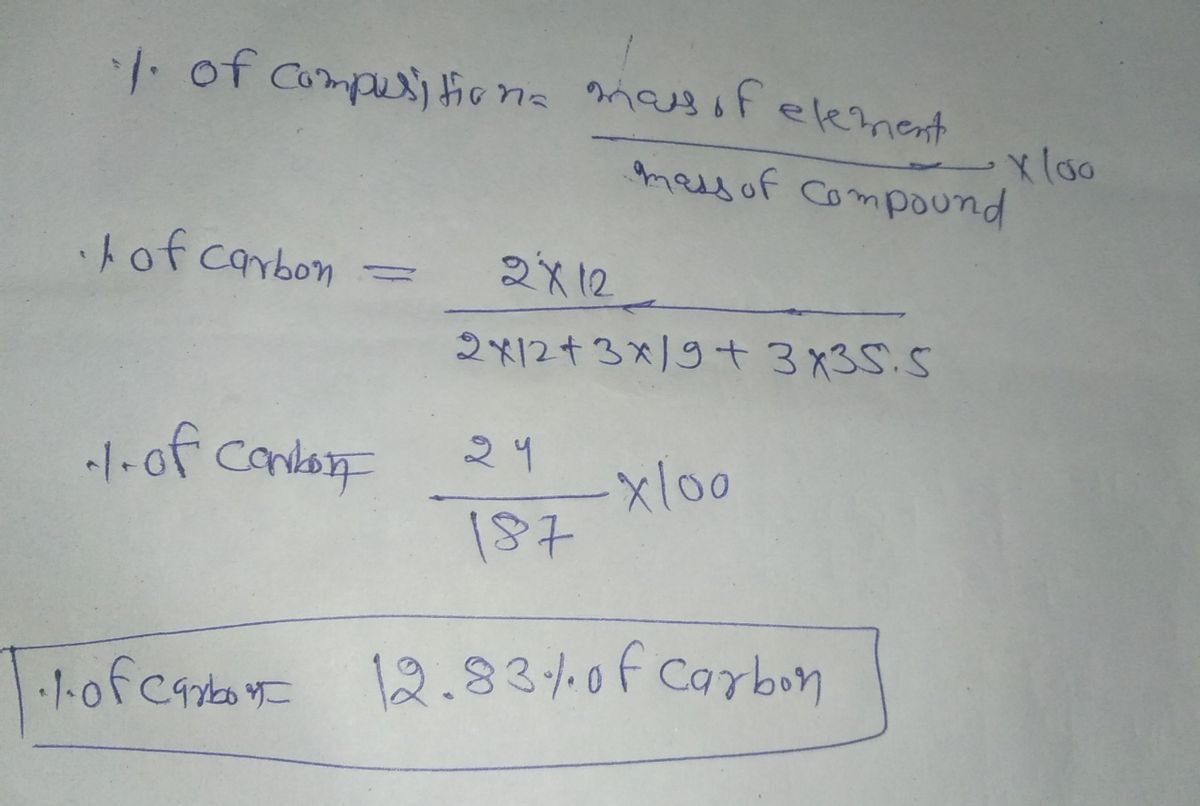 % of Composition = mass of element
mass of Compound × 100
% of Carbon = 2×12
2×12 + 3×19 + 3×35.5
% of Carbon = 24
187 ×100
% of Carbon = 12.83% of Carbon